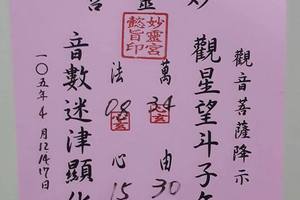 妙靈宮
妙靈宮
懿旨印
觀音菩薩降示
觀星望斗子
萬 34 由 30
法 08 心 15
音數迷津顯
一〇五年4月12.14.17日